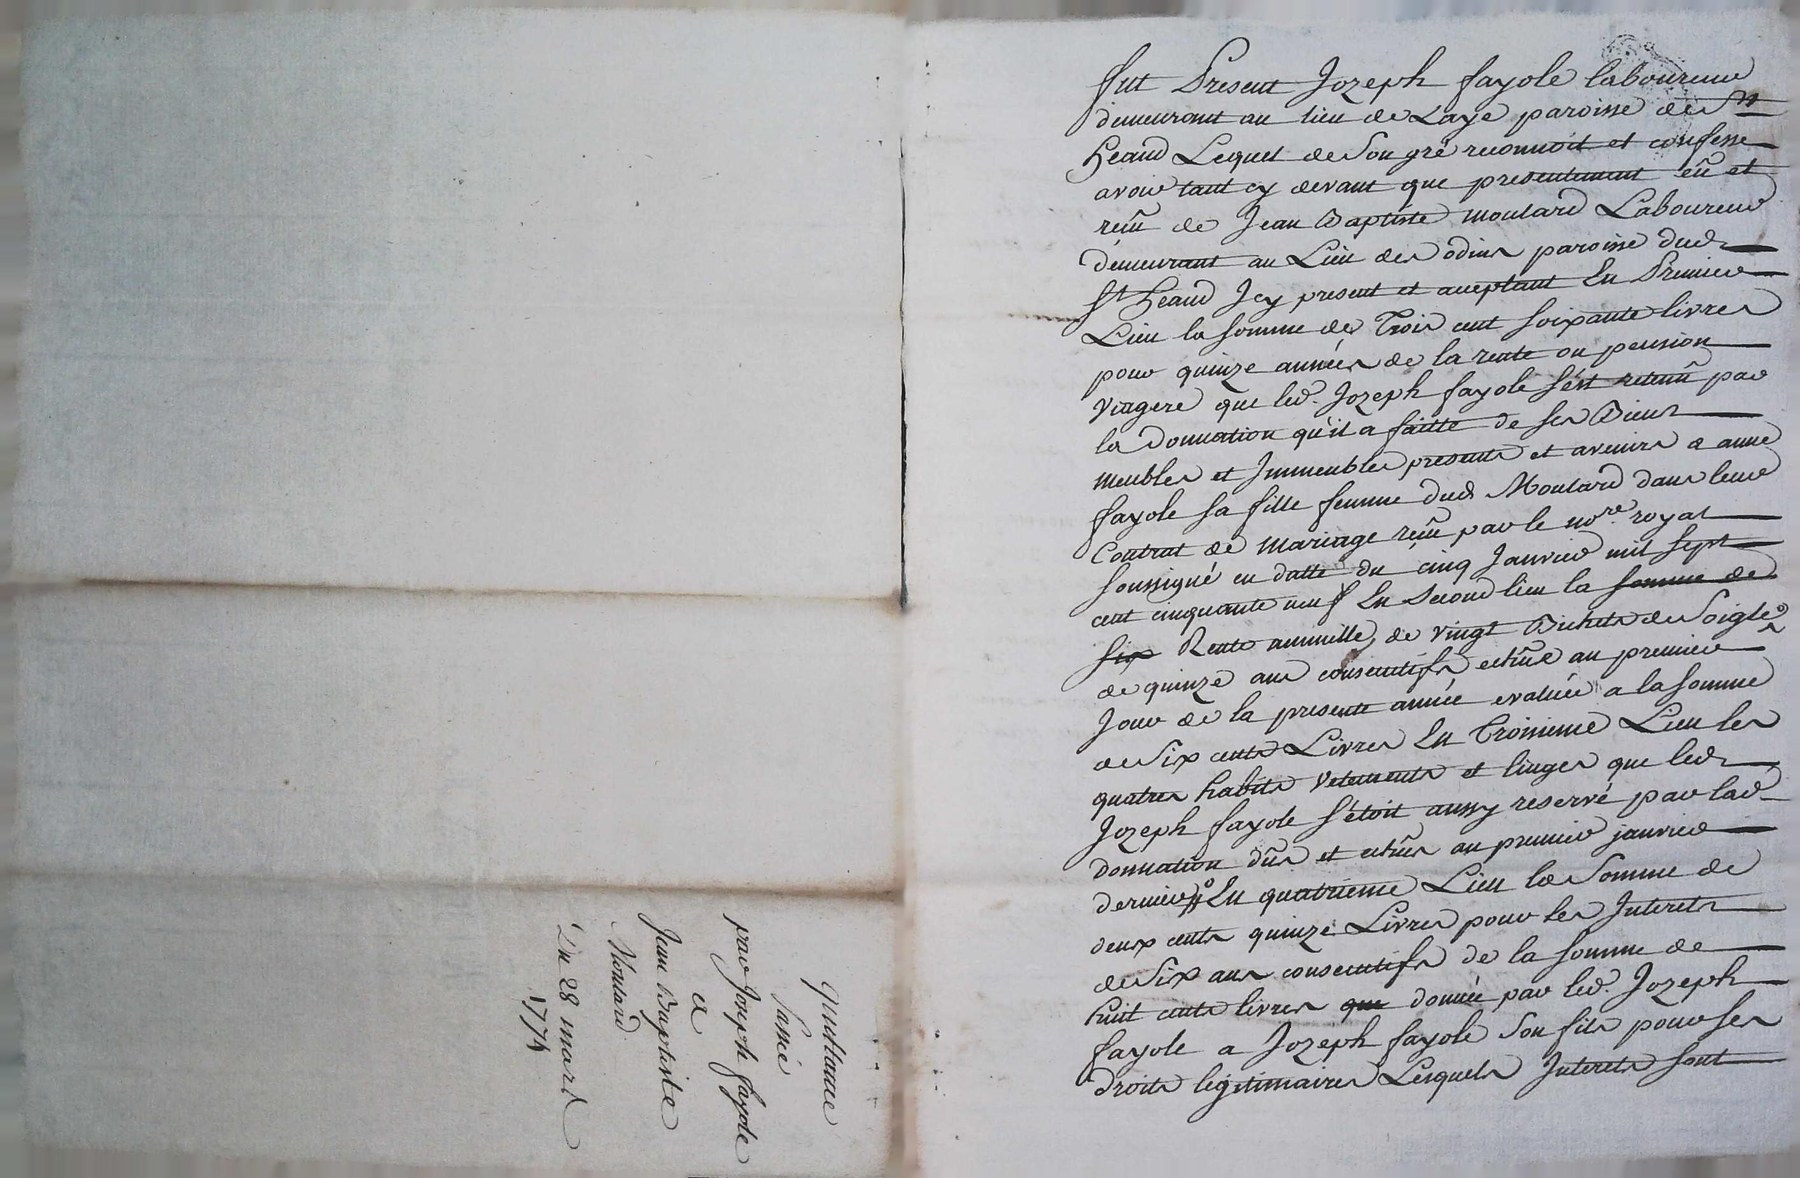 quittance
passée
par Joseph fayole
a
Jean Baptiste
Moulard
Du 28 mars
1774
fut Present Jozeph fayole laboureur
demeurant au lieu de Laye paroisse de St
heand Lequel de Son gré reconnoit et confesse
avoir tant cy devant que presentement eû et
reçû de Jean Baptiste moulard Laboureur
demeurant au Lieu des odins paroisse dud
St heand Jcy present et acceptant En Premier
Lieu la somme de Trois cent soixante livres
pour quinze années de la rente ou pension
viagere que led. Jozeph fayole s'est retenû par
la Donnation qu'il a faitte de ses Biens
meubles et Jmmeubles presents et avenirs a anne
fayole sa fille femme dud Moulard dans leur
Contrat de mariage reçû par le nore royal
soussigné en datte du cinq Janvier mil sept
cent cinquante neuf En Second lieu la somme de
six Rente annuelle, de vingt Bichets de Soigle
de quinze ans consecutifs echûe au premier
Jour de la presente année evaluée a la somme
de Six cents Livres En Troisieme Lieu les
quatres habits vetements et linges que led
Jozeph fayole s'étoit aussy reservé par lad
donnation dûs et echûs au premier janvier
dernier En quatrieme Lieu la Somme de
deux cents quinze Livres pour les Jnterets
de Six ans consecutifs de la somme de
huit cents livres que donnée par led. Jozeph
fayole a Jozeph fayole Son fils pour ses
droits legitimaires Lesquels Jnterets sont